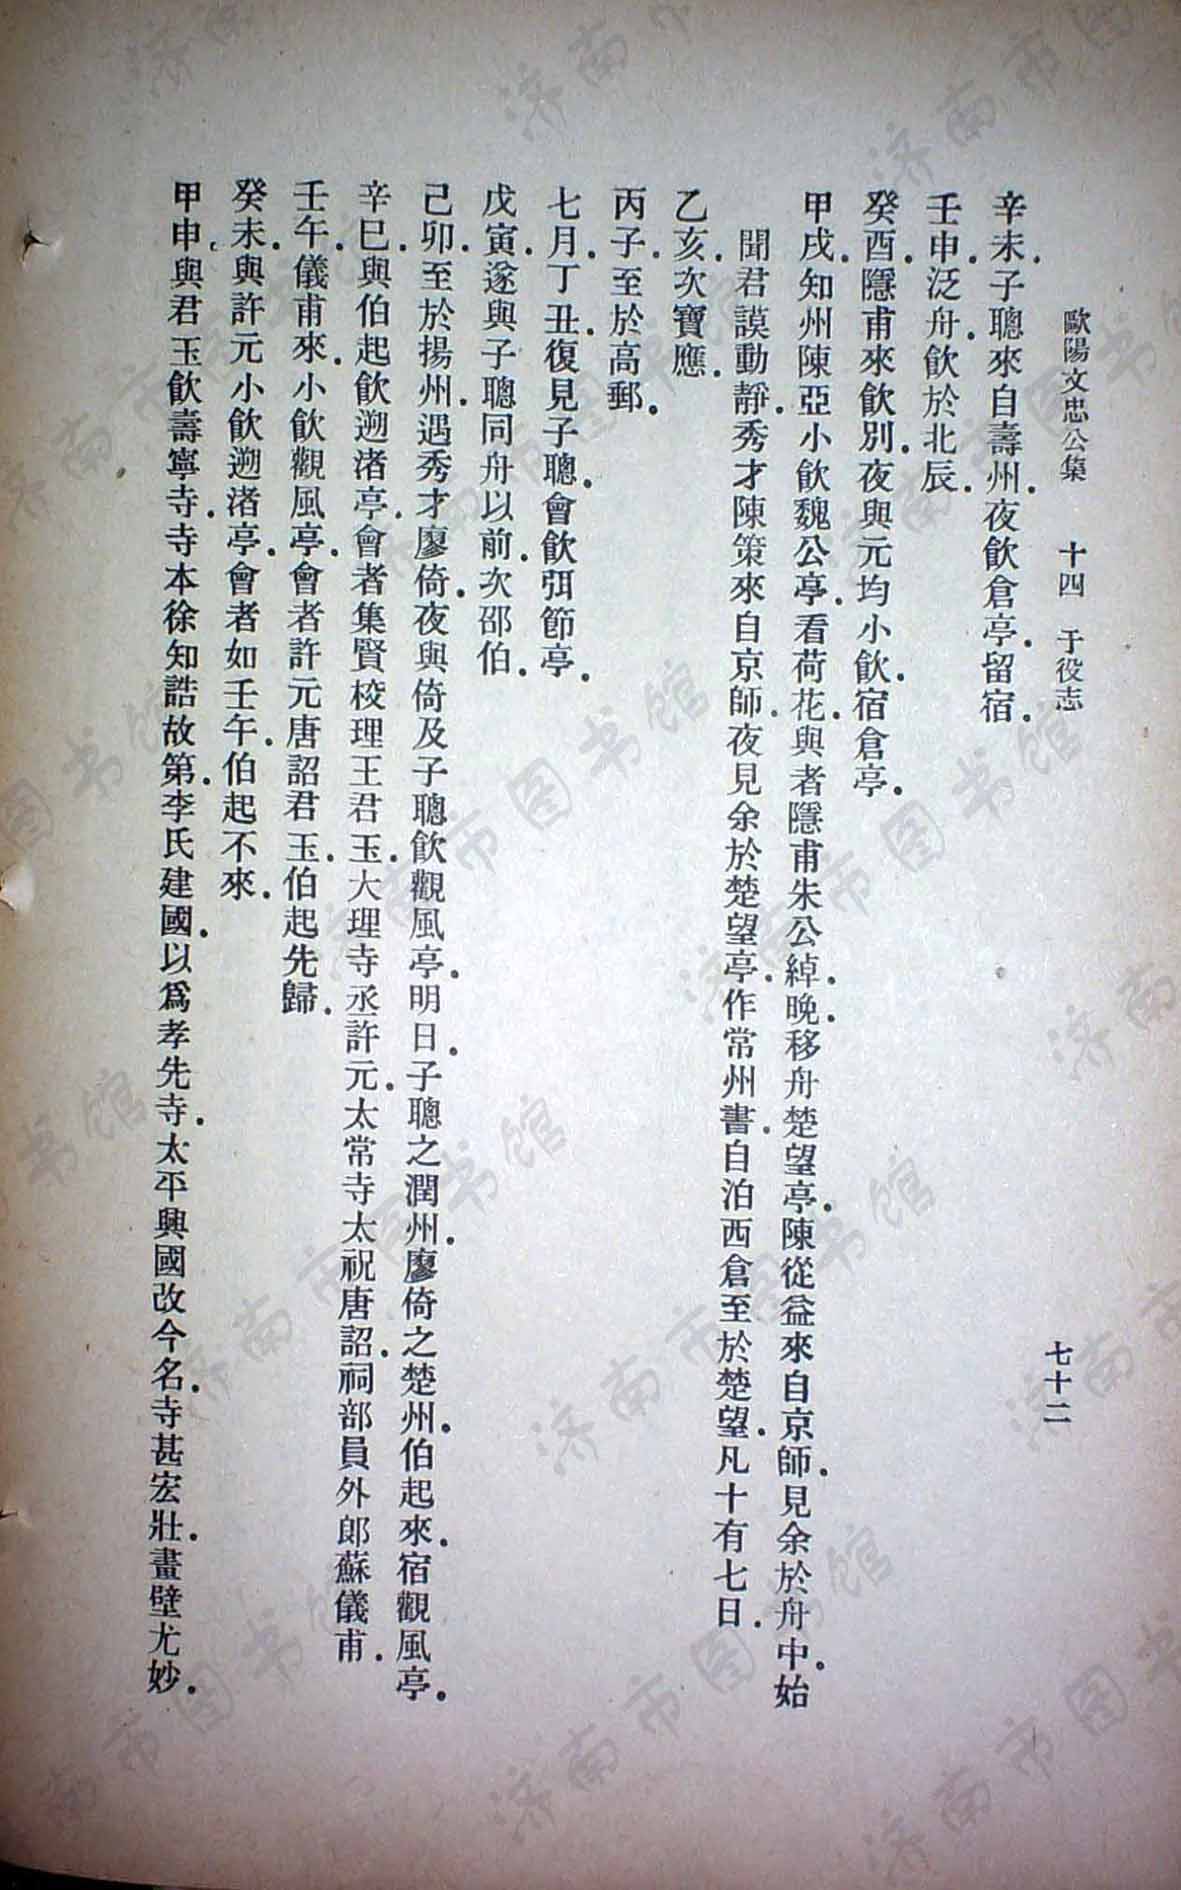 歐陽文忠公集　十四　于役志　七十二
辛未.子聰來自壽州.夜飲倉亭.留宿.
壬申泛舟.飲於北辰.
癸酉.隱甫來飲別.夜與元均小飲.宿倉亭.
甲戌.知州陳亞小飲魏公亭.看荷花.與者隱甫朱公綽.晚.移舟楚望亭.陳從益來自京師.見余於舟中.始
聞君謨動靜.秀才陳策來自京師.夜見余於楚望亭.作常州書.自泊西倉至於楚望.凡十有七日.
乙亥.次寶應.
丙子.至於高郵.
七月.丁丑.復見子聰.會飲弭節亭.
戊寅.遂與子聰同舟以前.次邵伯.
己卯.至於揚州.遇秀才廖倚.夜與倚及子聰飲觀風亭.明日.子聰之潤州.廖倚之楚州.伯起來.宿觀風亭.
辛巳.與伯起飲遡渚亭.會者集賢校理王君玉.大理寺丞許元.太常寺太祝唐詔.祠部員外郎蘇儀甫.
壬午.儀甫來.小飲觀風亭.會者許元唐詔君玉.伯起先歸.
癸未.與許元小飲遡渚亭.會者如壬午.伯起不來.
甲申.與君玉飲壽寧寺.寺本徐知誥故第.李氏建國.以爲孝先寺.太平興國改今名.寺甚宏壯.畫壁尤妙.
济南市图书馆